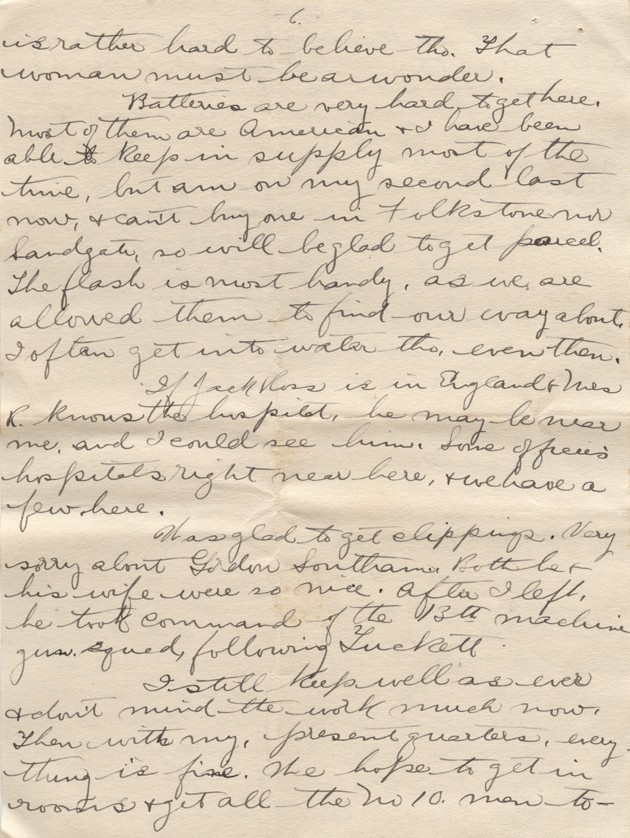 6.
is rather hard to believe tho. That
woman must be a wonder.
Batteries are very hard to get here.
Most of them are American & I have been
able to keep in supply most of the
time, but am on my second last
now, & can't buy one in Folkstone nor
Sandgate, so will be glad to get parcel.
The flash is most handy, as we are
allowed them to find our way about.
I often get into water tho, even then.
If Jack Ross is in England & Mrs
R. knows the hospital, he may be near
me, and I could see him. Some officers
hospitals right near here, & we have a
few here.
Was glad to get clippings. Very
sorry about Gordon Southam. Both he &
his wife were so nice. After I left,
he took command of the 13th machine
gun squad, following Tuckett.
I still keep well as ever
& don't mind the work much now.
Then with my present quarters, every
thing is fine. We hope to get in
rooms & get all the No 10. men to-